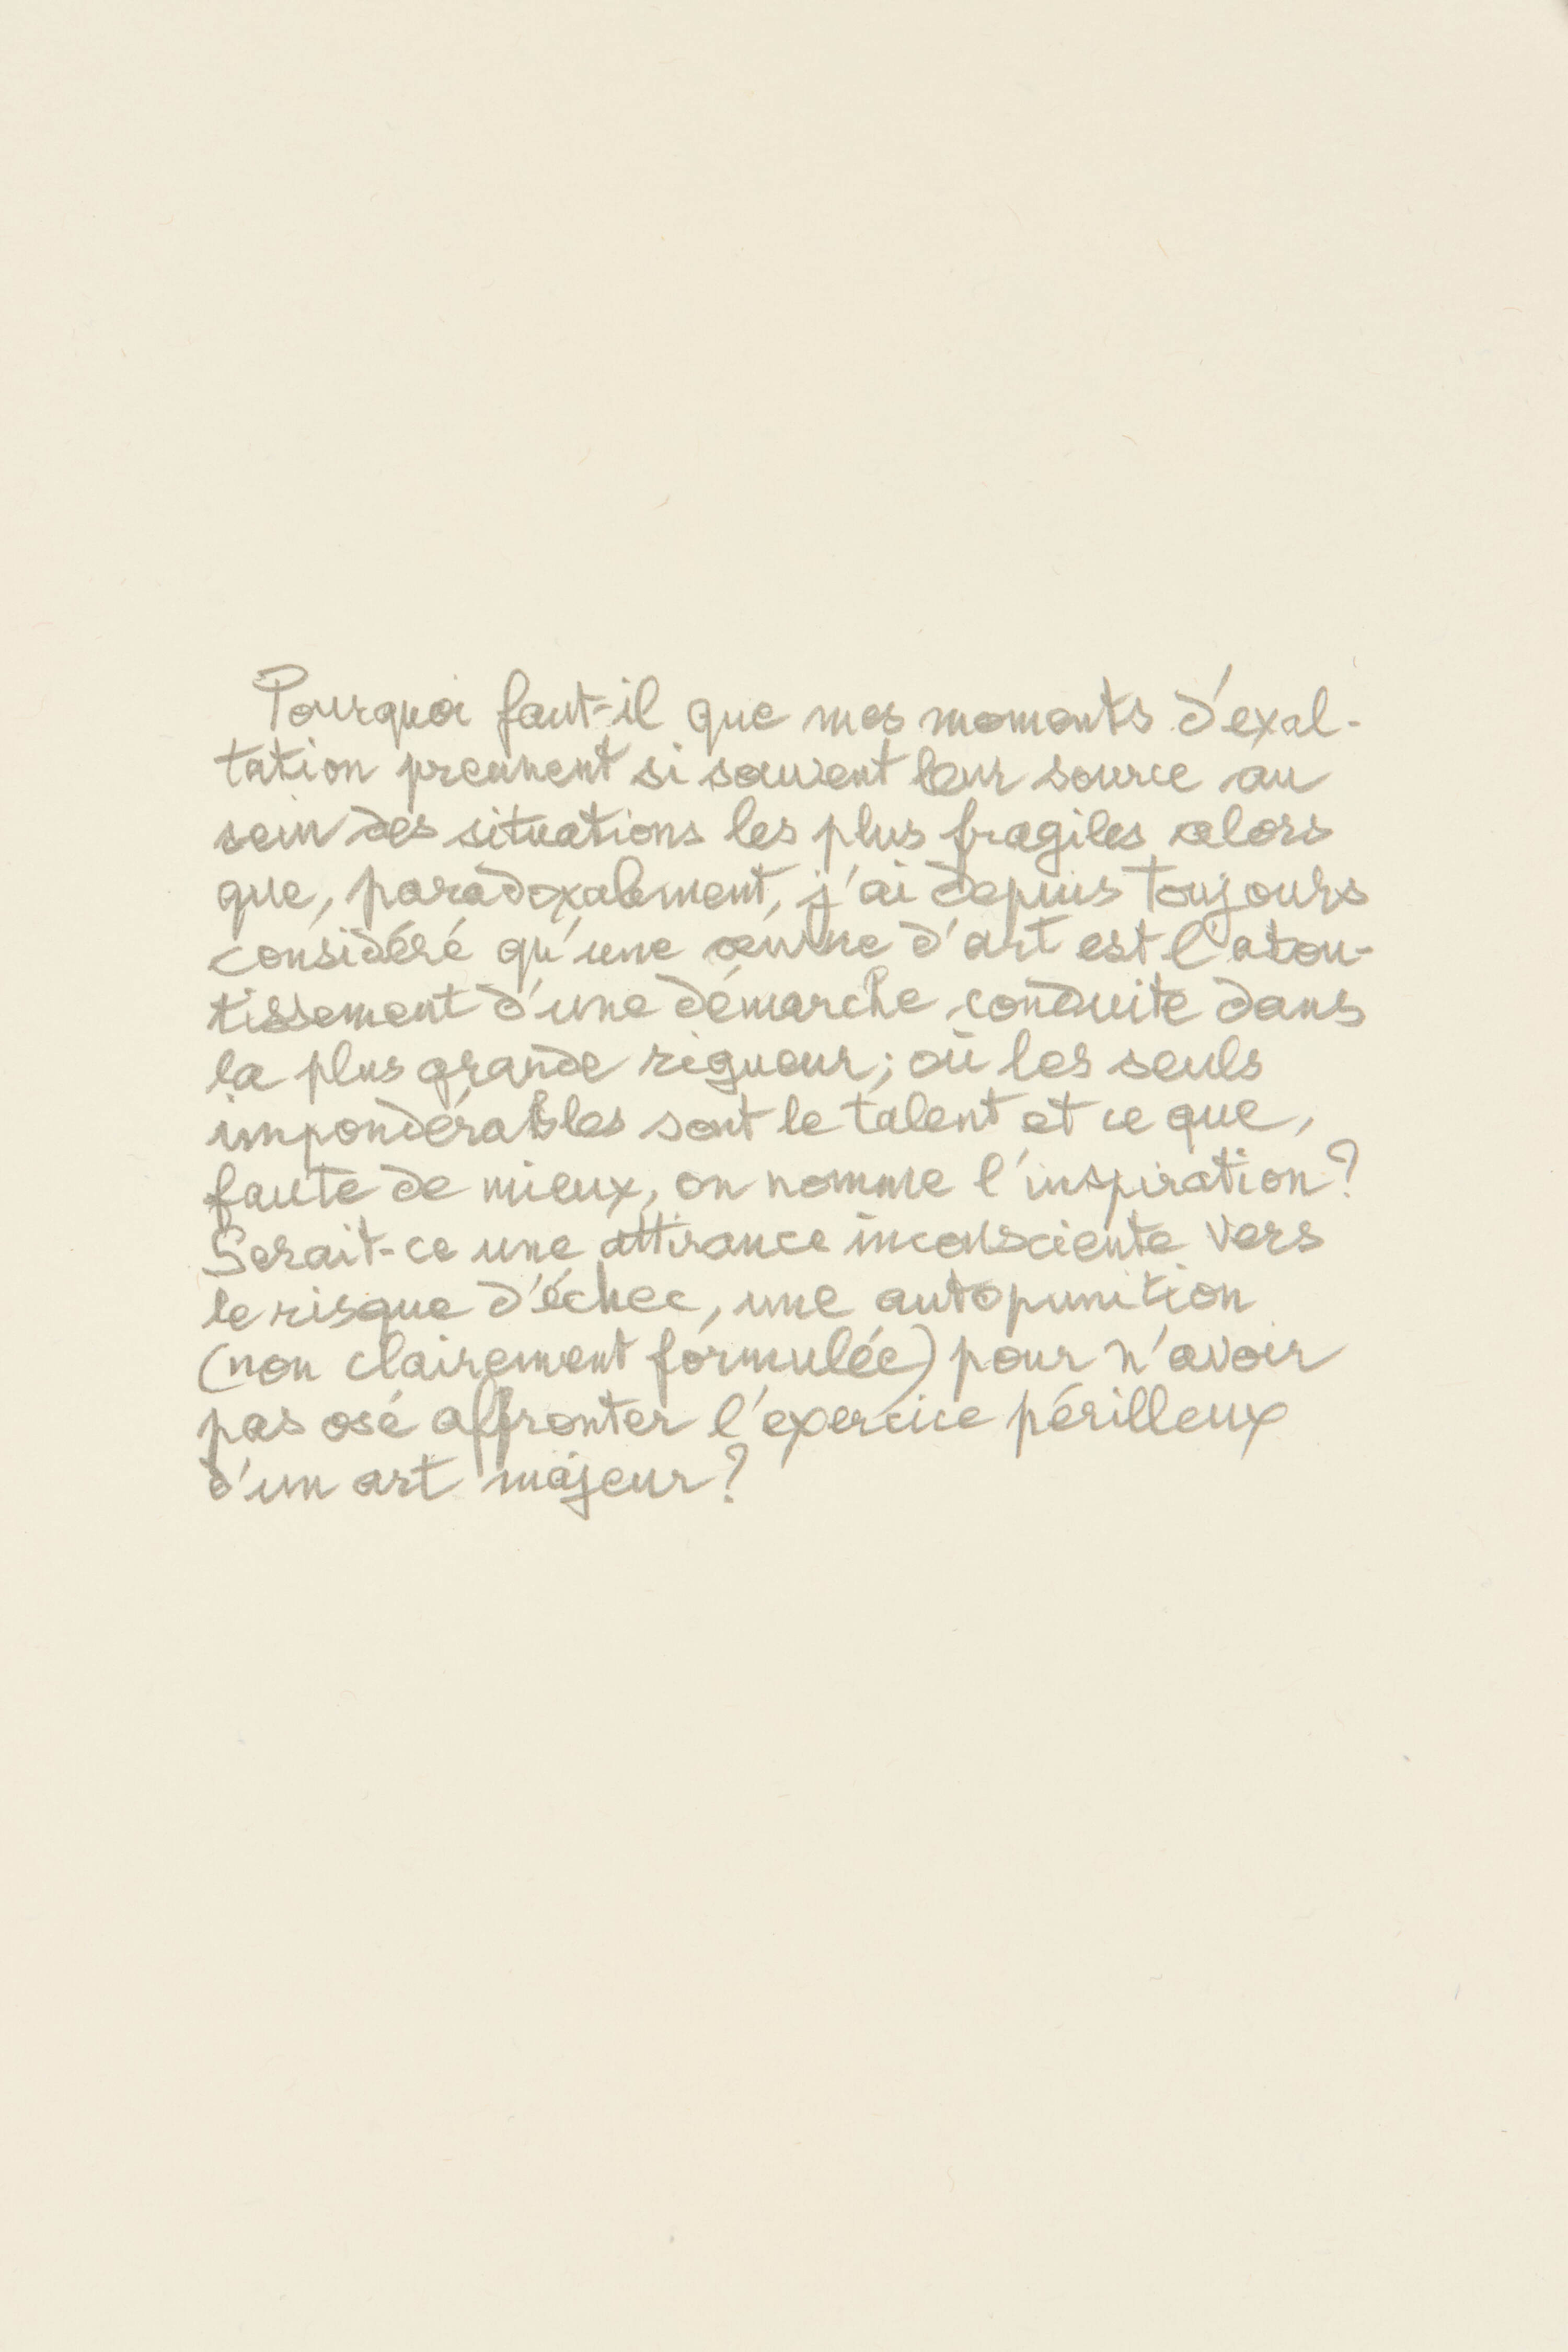 Pourquoi faut-il que mes moments d'exal-
tation prennent si souvent leur source au
sein des situations les plus fragiles alors
que, paradoxalement, j'ai depuis toujours
considéré qu'une œuvre d'art est l'abou-
tissement d'une démarche conduite dans
la plus grande rigueur; où les seuls
impondérables sont le talent et ce que,
faute de mieux, on nomme l'inspiration?
Serait-ce une attirance inconsciente vers
le risque d'échec, une autopunition
(non clairement formulée) pour n'avoir
pas osé affronter l'exercice périlleux
d'un art majeur?